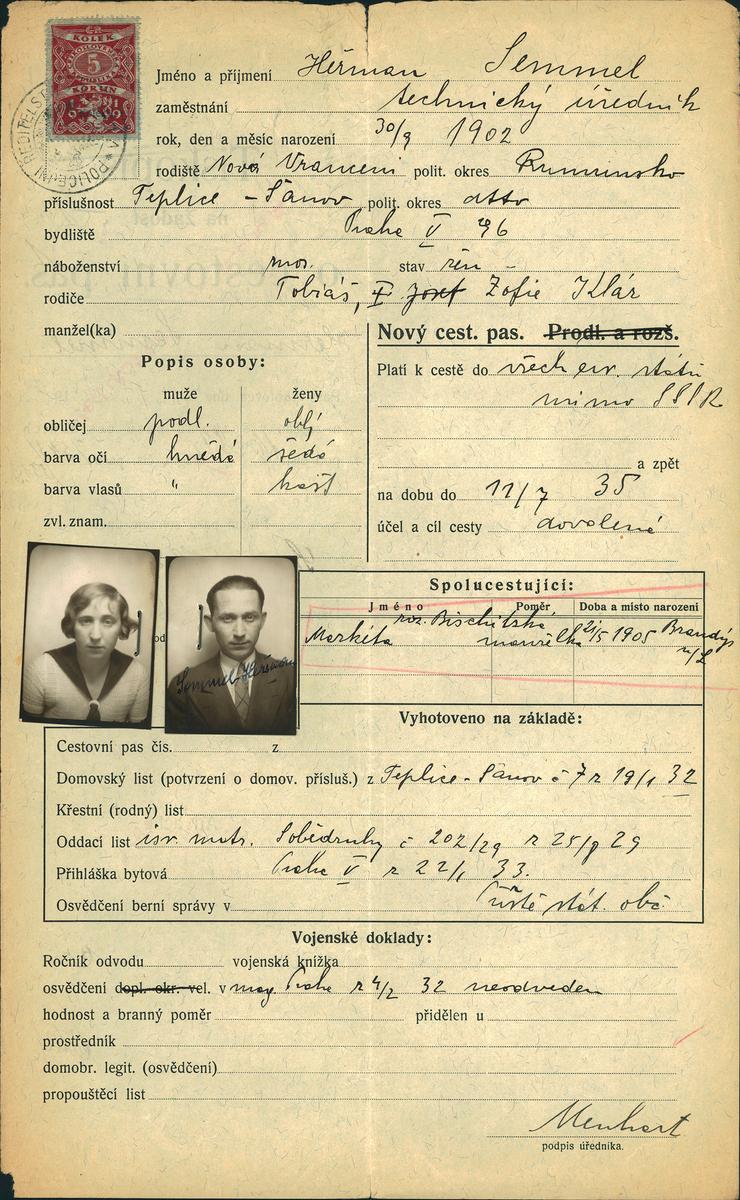 KOLEK
5
KORUN
1919
Jméno a příjmení Heřman Semmel
zaměstnání technický úředník
rok, den a měsíc narození 30/9 1902
rodiště Nová Vranceni polit. okres Rumunsko
příslušnost Teplice - Šanov polit. okres dtto
bydliště Praha V 96
náboženství mos. stav žen -
rodiče Tobiáš, Josef Zofie Klár
manžel(ka)
Nový cest. pas. Prodl. a rozš.
Popis osoby:
muže ženy
obličej podl. oblý
barva očí hnědá šedá
barva vlasů " kašt
zvl. znam.
Platí k cestě do všech evr. států
mimo SSSR
a zpět
na dobu do 11/7 35
účel a cíl cesty dovolená
Semmel Heřman
Spolucestující:
Jméno Poměr Doba a místo narození
roz. Bischitzká
Markéta manželka 21/5 1905 Brandýs n/L
Vyhotoveno na základě:
Cestovní pas čís. z
Domovský list (potvrzení o domov. přísluš.) z Teplice - Šanov č 7 z 19/1 32
Křestní (rodný) list
Oddací list isr. matr. Sobědruhy č 202/29 z 25/8 29
Přihláška bytová Praha V z 22/1 33.
Osvědčení berní správy v stát. obč.
Vojenské doklady:
Ročník odvodu vojenská knížka
osvědčení dopl. okr. vel. v mag. Praha z 4/2 32 neodveden
hodnost a branný poměr přidělen u
prostředník
domobr. legit. (osvědčení)
propouštěcí list
Menhart
podpis úředníka.